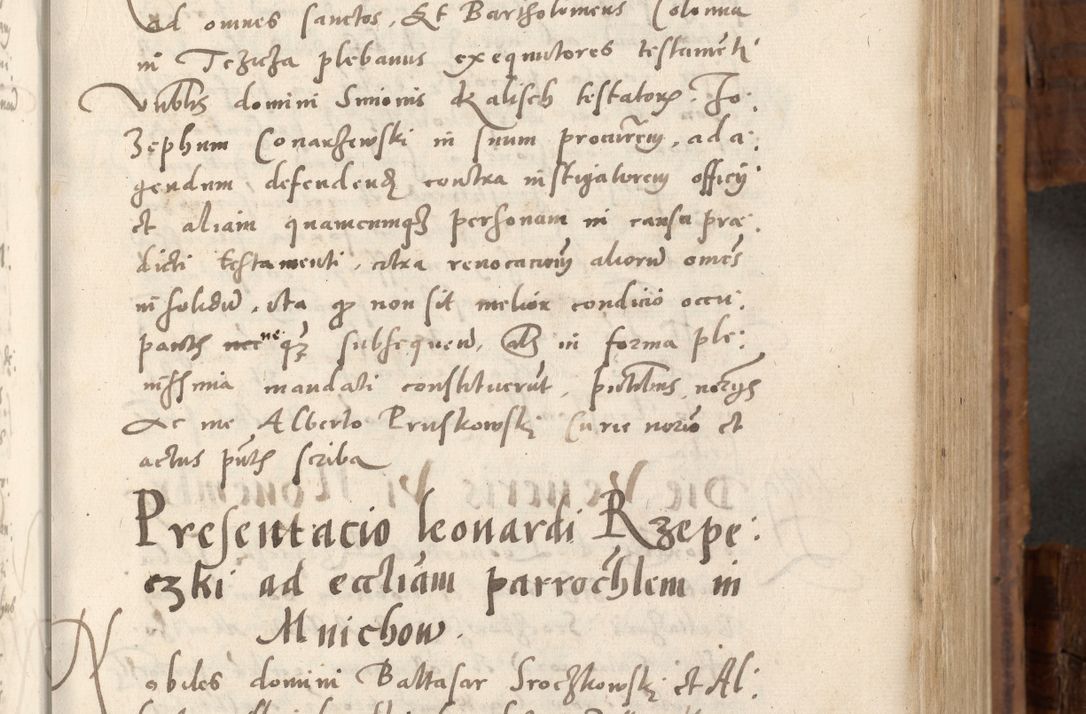 ad omnes sanctos, Et Bartholomeus Colonna
in Tczicza plebanus exequutores testamenti
domini Simonis Kalisch testatoris Jo:
zephum Conarzewski in suum procurem, ad a:
gendum, defendend contra instigatorem officii
et aliam quamcumqz personam in causa præ:
dicti testamenti, citra revocacionem aliorum omes
insolidum, ita qp non sit melior condicio occu:
pantis neqz subsequen, in forma ple:
nissima mandati constituerunt, pntibus noriis
Ac me Alberto Pruskowski Curie norio et
actus pntis scriba
Presentacio leonardi Rzepe:
czki ad eccliam parrochlem in
Mnichow.
Nobiles domini Baltasar Sroczkowski et Al: